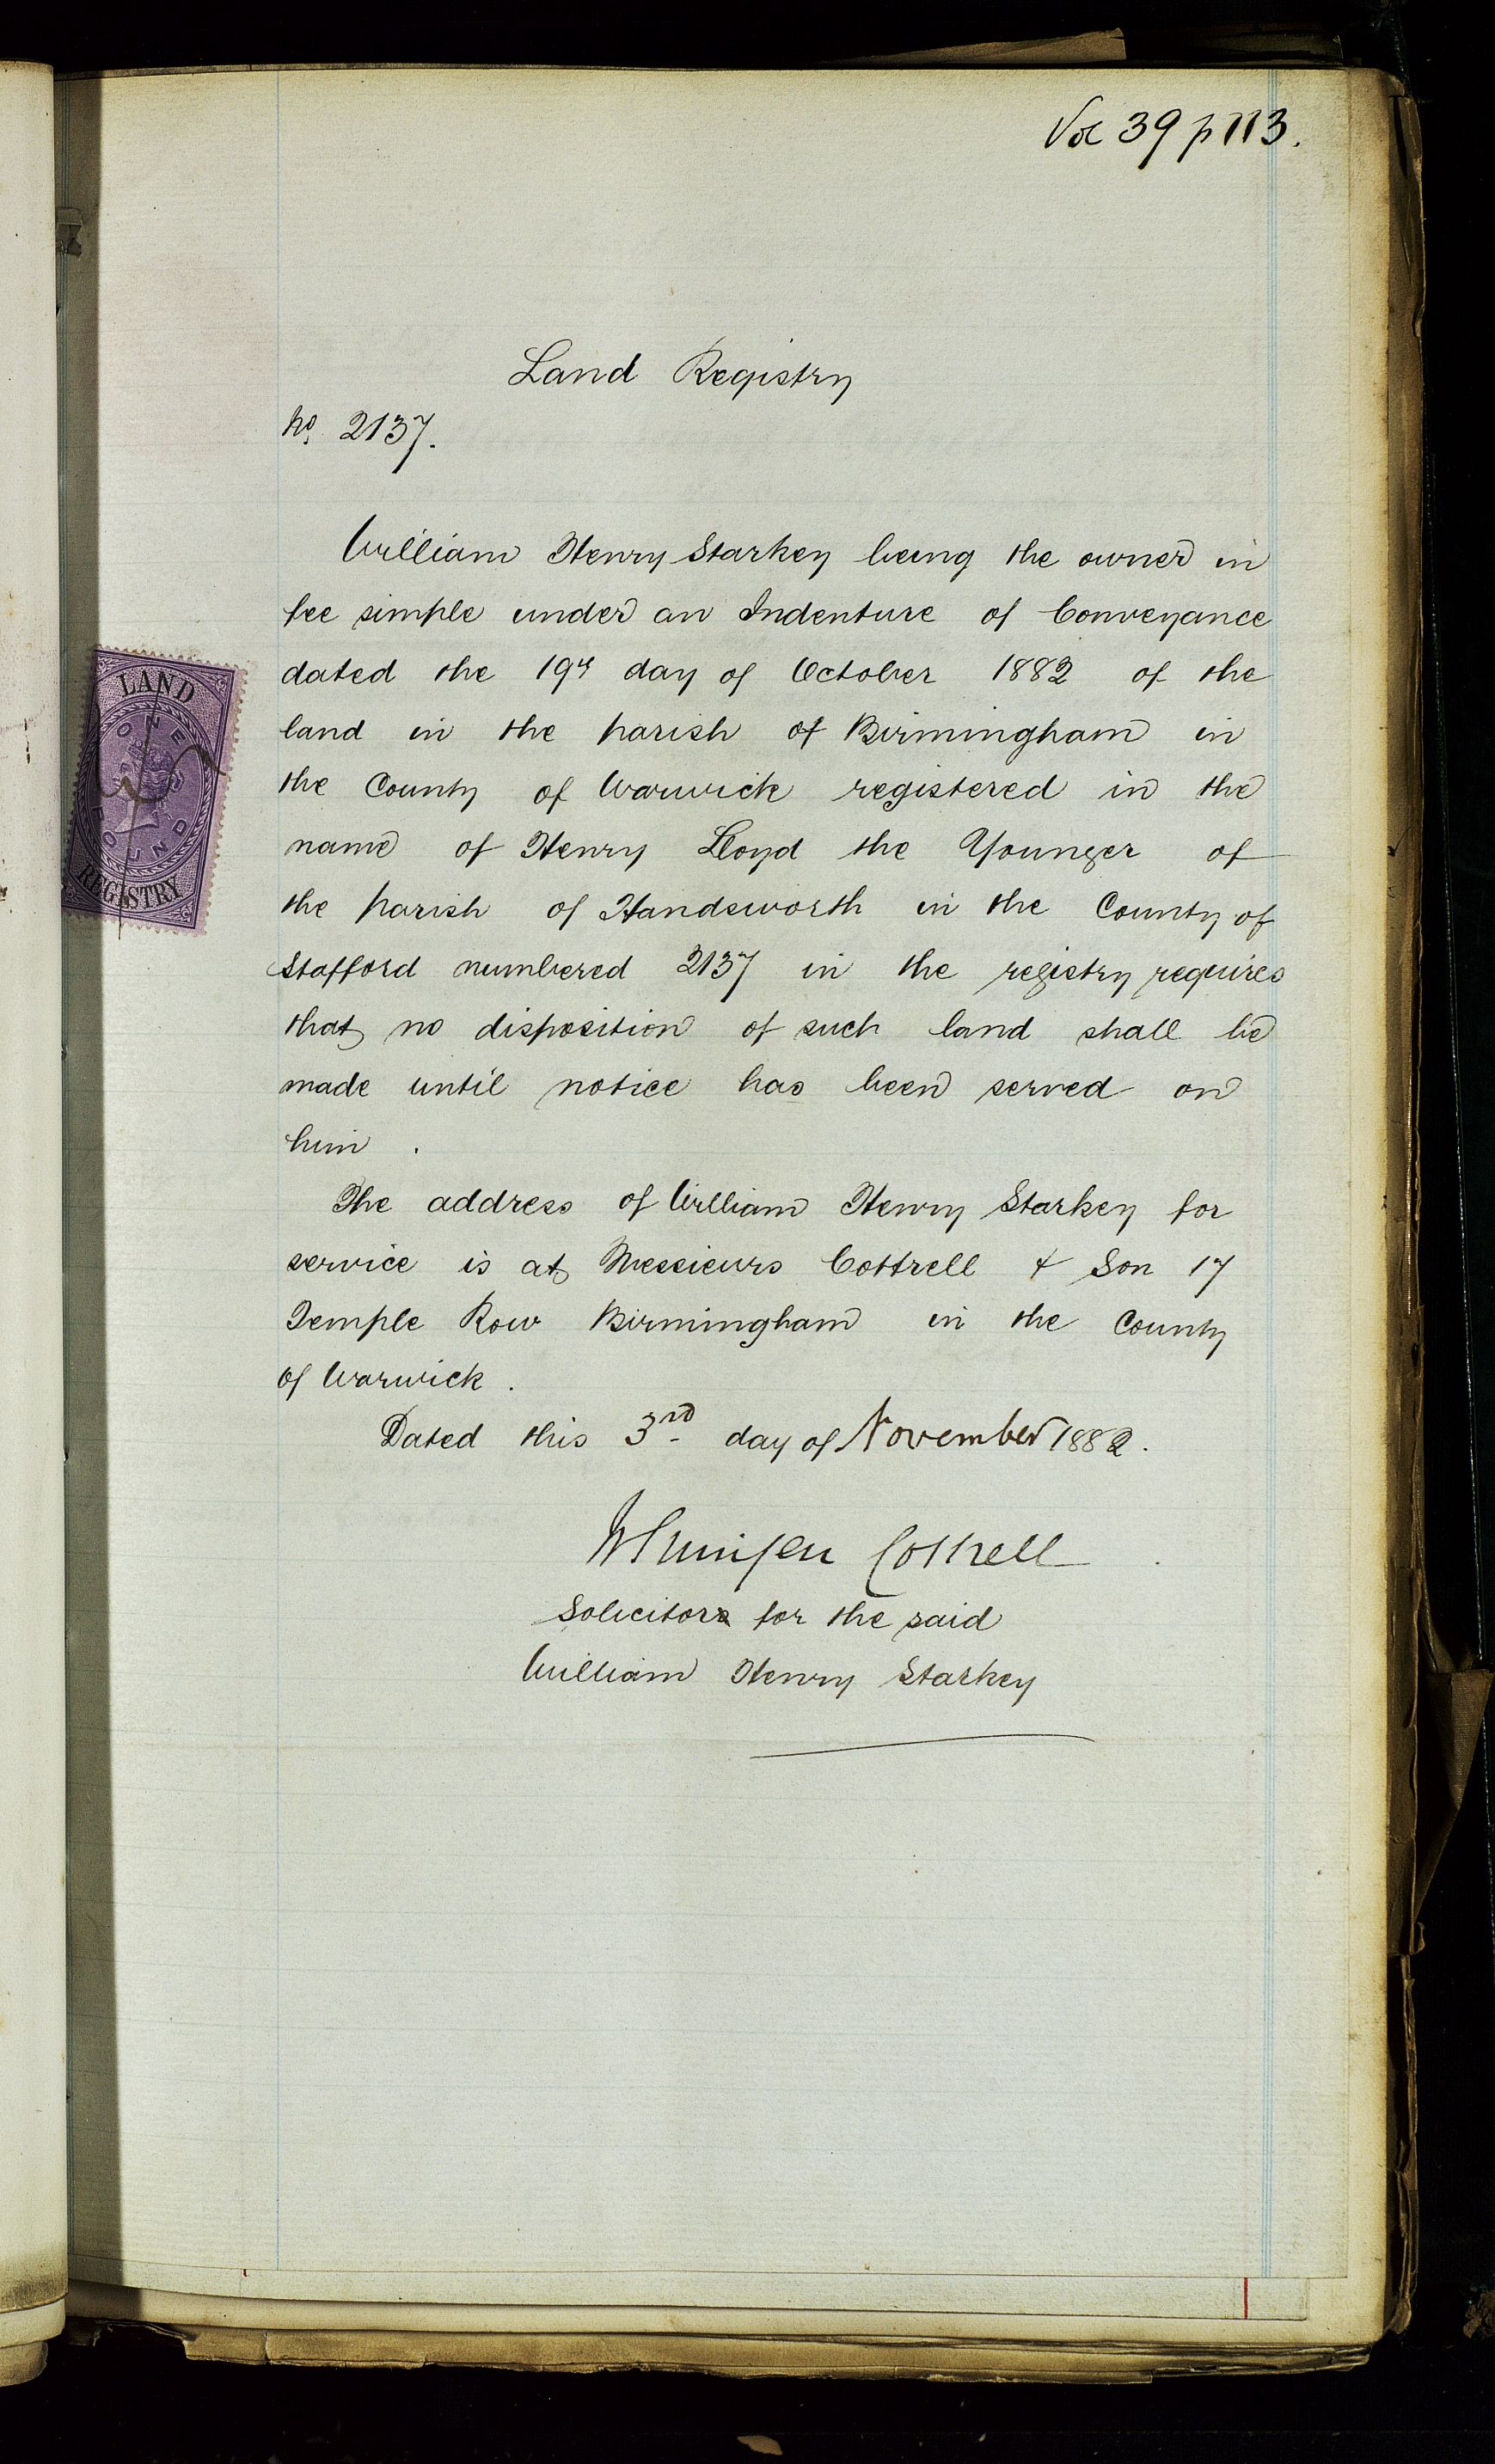 Vol 39 p 113.
Land Registry
No. 2137.
William Henry Starkey being the owner in
fee simple under an Indenture of Conveyance
dated the 19th day of October 1882 of the
land in the parish of Birmingham in
the County of Warwick registered in the
name of Henry Lloyd the Younger of
the parish of Handsworth in the County of
Stafford numbered 2137 in the registry requires
that no disposition of such land shall be
made until notice has been served on
him.
The address of William Henry Starkey for
service is at Messieurs Cottrell & Son 17
Temple Row Birmingham in the County
of Warwick.
Dated this 3rd day of November 1882.
Cottrell
Solicitor for the said
William Henry Starkey
LAND
ONE
POUND
REGISTRY